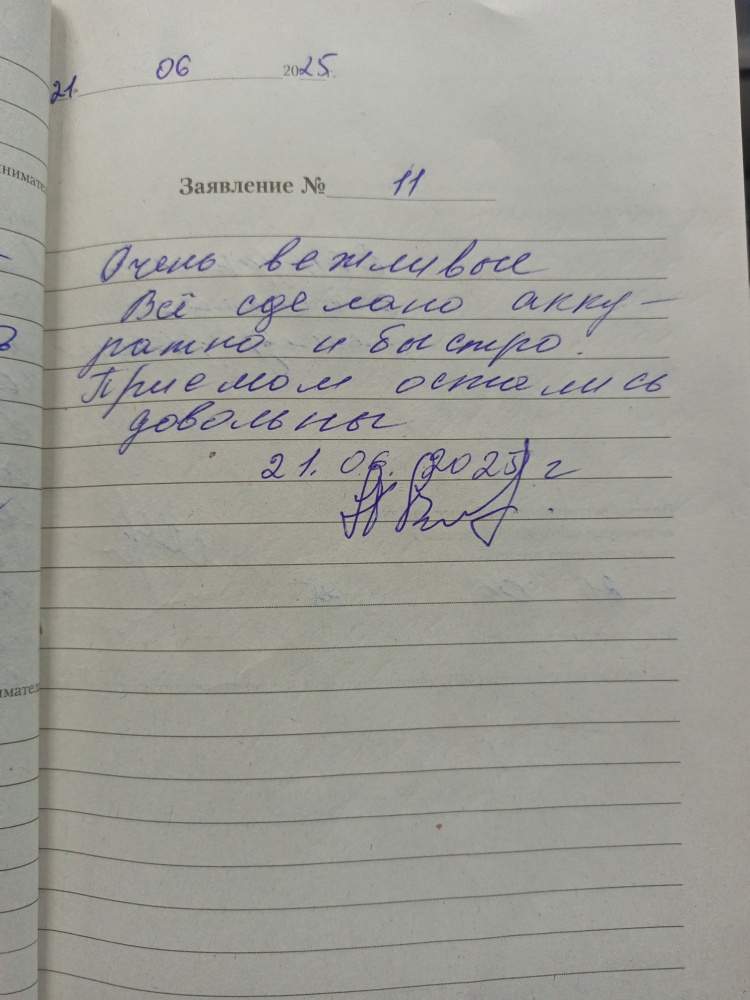 21. 06 2025г.
Заявление № 11
Очень вежливые
Всё сделано акку-
ратно и быстро.
Приемом остались
довольны
21.06.2025 г